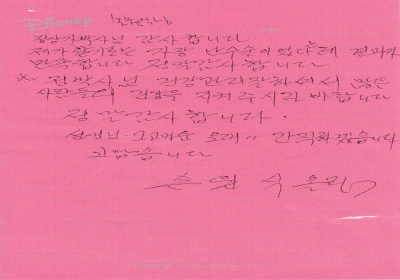 정상가박사님 감사 합니다
제가 알기로는 가장 난수술이었다해 결과가
만족합니다 정말감사 합니다
※ 정박사님 건강관리잘하셔서 많은
사람들의 건강을 지켜주시리 바랍니다
정말감사합니다.
선생님. 고마움 오래 간직하겠습니다
고맙습니다
손 원 식 올림